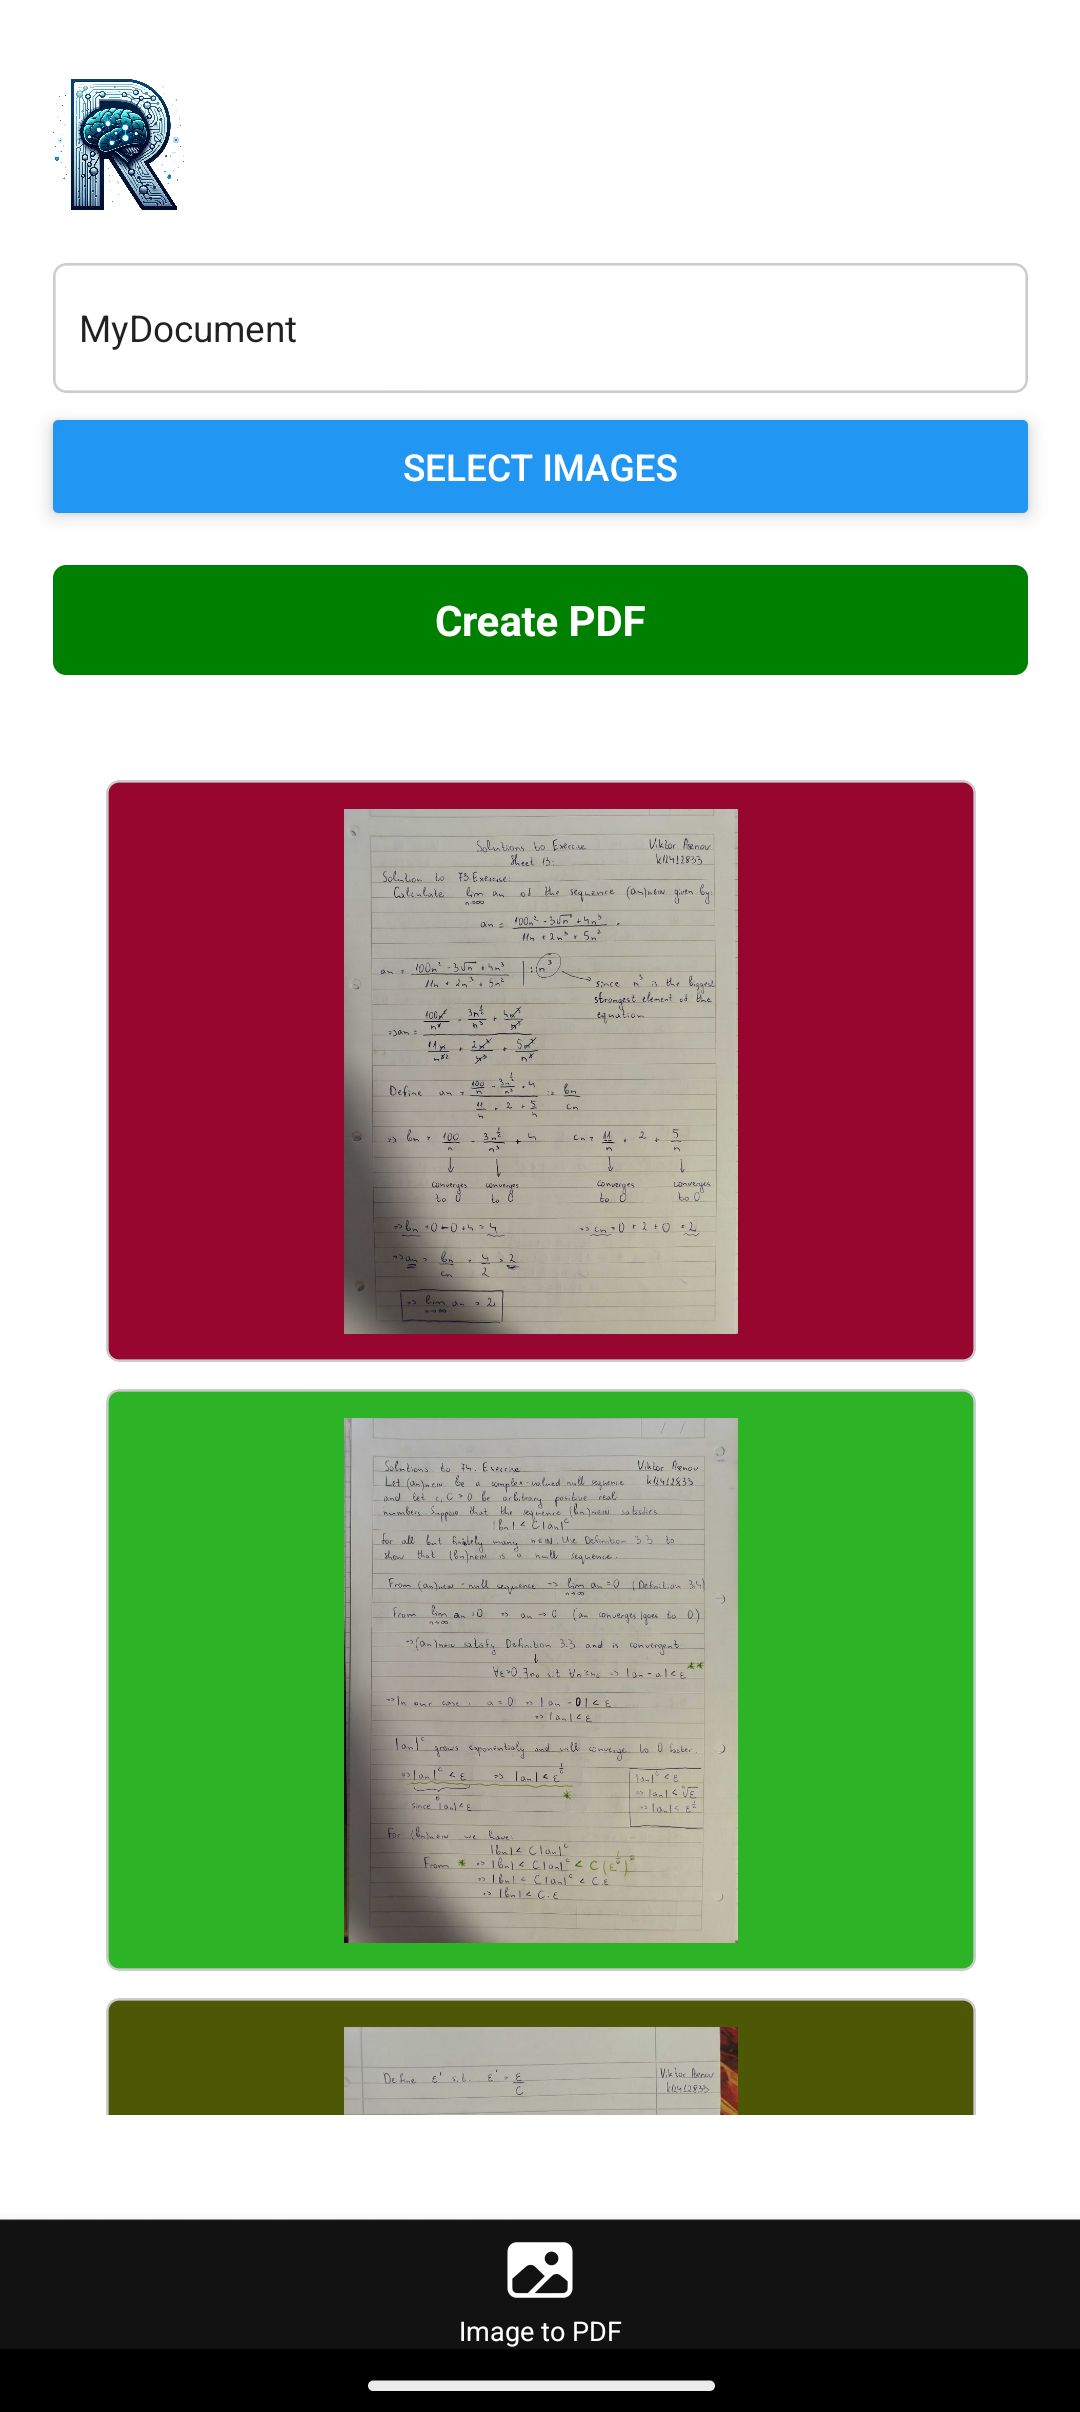 MyDocument
SELECT IMAGES
Create PDF
Solutions to Exercise
Sheet 13.
Viktor Asenov
k12412833
Solution to 73.Exercise:
Calculate lim an of the sequence (an)n∈ℕ given by:
n→∞
an = 100n² - 3√n + 4n³
11n + 2n³ + 5n²
an = 100n² - 3√n + 4n³ | : n³
11n + 2n³ + 5n²
since n³ is the biggest
strongest element of the
equation
Define an = bn
cn
=> bn = 100 - 3n + 4 cn = 11 + 2 + 5
converges converges converges converges
to 0 to 0 to 0 to 0
=> bn = 0 - 0 + 4 = 4 => cn = 0 + 2 + 0 = 2
=> an = bn = 4 = 2
cn 2
=> lim an = 2
n→∞
Solutions to 74. Exercise
Viktor Asenov
k12412833
Let (an)n∈ℕ be a complex-valued null sequence
and let c, C > 0 be arbitrary positive real
numbers Suppose that the sequence (bn)n∈ℕ satisfies
|bn| < C|an|^c
for all but finitely many n∈ℕ. Use Definition 3.3 to
show that (bn)n∈ℕ is a null sequence.
From (an)n∈ℕ - null sequence => lim an = 0 (Definition 3.4)
n→∞
From lim an = 0 => an → 0 (an converges/goes to 0)
n→∞
=> (an)n∈ℕ satisfy Definition 3.3 and is convergent
∀ε>0 ∃n₀ s.t. ∀n≥n₀ => |an - a| < ε **
=> In our case: a = 0 => |an - 0| < ε
=> |an| < ε
|an|^c grows exponentialy and will converge to 0 faster.
=> |an|^c < ε => |an| < ε^(1/c)
*
since |an| < ε
|an|^c < ε
=> |an| < ᶜ√ε
=> |an| < ε^(1/c)
For (bn)n∈ℕ we have:
|bn| < C|an|^c
From * => |bn| < C|an|^c < C(ε^(1/c))^c
=> |bn| < C|an|^c < C.ε
=> |bn| < C.ε
Define ε' s.t. ε' = ε
C
Viktor Asenov
k12412833
Image to PDF